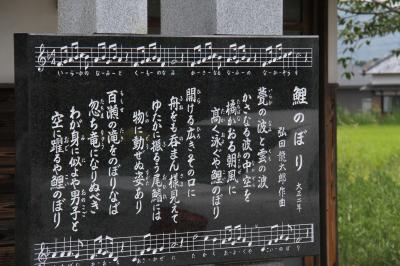 いーらーかの なーみーと くーもーのなみ かーさーなる なーみーの なーかーぞらを
鯉のぼり
弘田龍太郎 作曲
大正二年
甍の波と雲の波
かさなる波の中空を
橘かおる朝風に
高く泳ぐや鯉のぼり
開ける広きその口に
舟をも呑まん様見えて
ゆたかに振う尾鰭には
物に動ぜぬ姿あり
百瀬の滝をのぼりなば
忽ち竜になりぬべき
わが身に似よや男子と
空に躍るや鯉のぼり